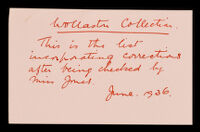 Wollaston Collection.
This is the list
incorporating corrections
after being checked by
Miss Jones.
June. 1936.